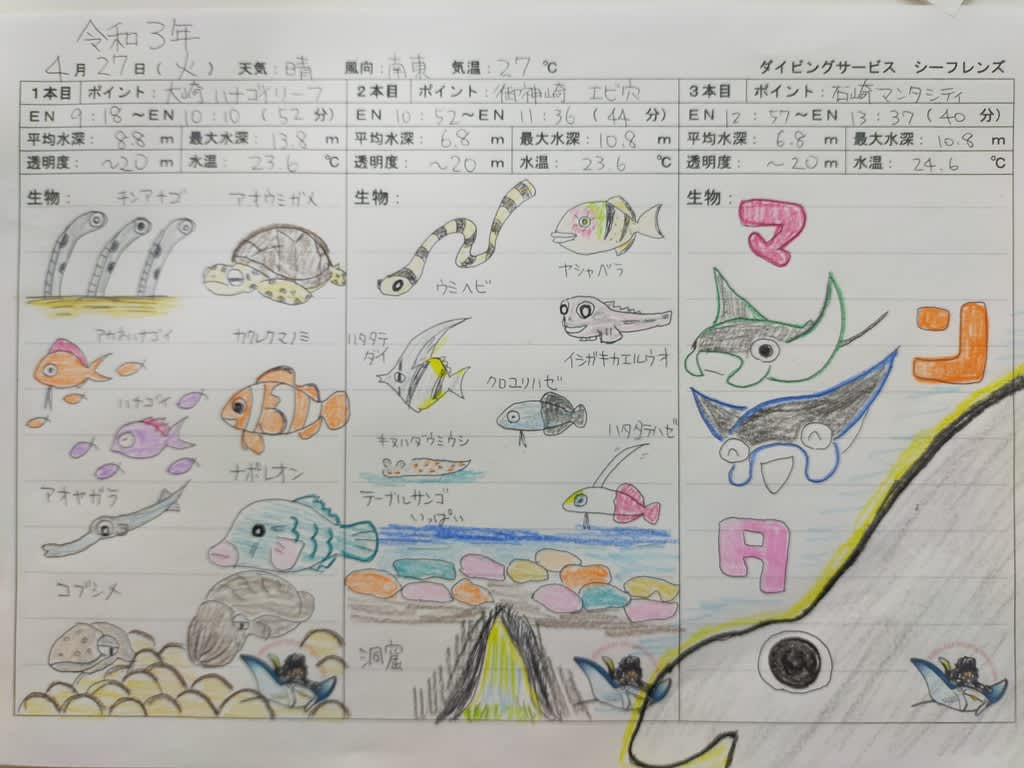 令和3年
4月27日(火) 天気:晴 風向:南東 気温:27℃ ダイビングサービス シーフレンズ
1本目 ポイント:大崎ハナゴイリーフ
EN 9:18～EN 10:10 (52分)
平均水深: 8.8 m 最大水深: 13.8 m
透明度: ～20 m 水温: 23.6 ℃
生物:
チンアナゴ
アオウミガメ
アカネハナゴイ
カクレクマノミ
ハナゴイ
ナポレオン
アオヤガラ
コブシメ
2本目 ポイント:御神崎 エビ穴
EN 10:52～EN 11:36 (44分)
平均水深: 6.8 m 最大水深: 10.8 m
透明度: ～20 m 水温: 23.6 ℃
生物:
ウミヘビ
ヤシャベラ
ハタタテ
ダイ
イシガキカエルウオ
クロユリハゼ
ハタタテハゼ
キヌハダウミウシ
テーブルサンゴ
いっぱい
洞窟
3本目 ポイント:石崎マンタシティ
EN 12:57～EN 13:37 (40分)
平均水深: 6.8 m 最大水深: 10.8 m
透明度: ～20 m 水温: 24.6 ℃
生物:
マ
ン
タ